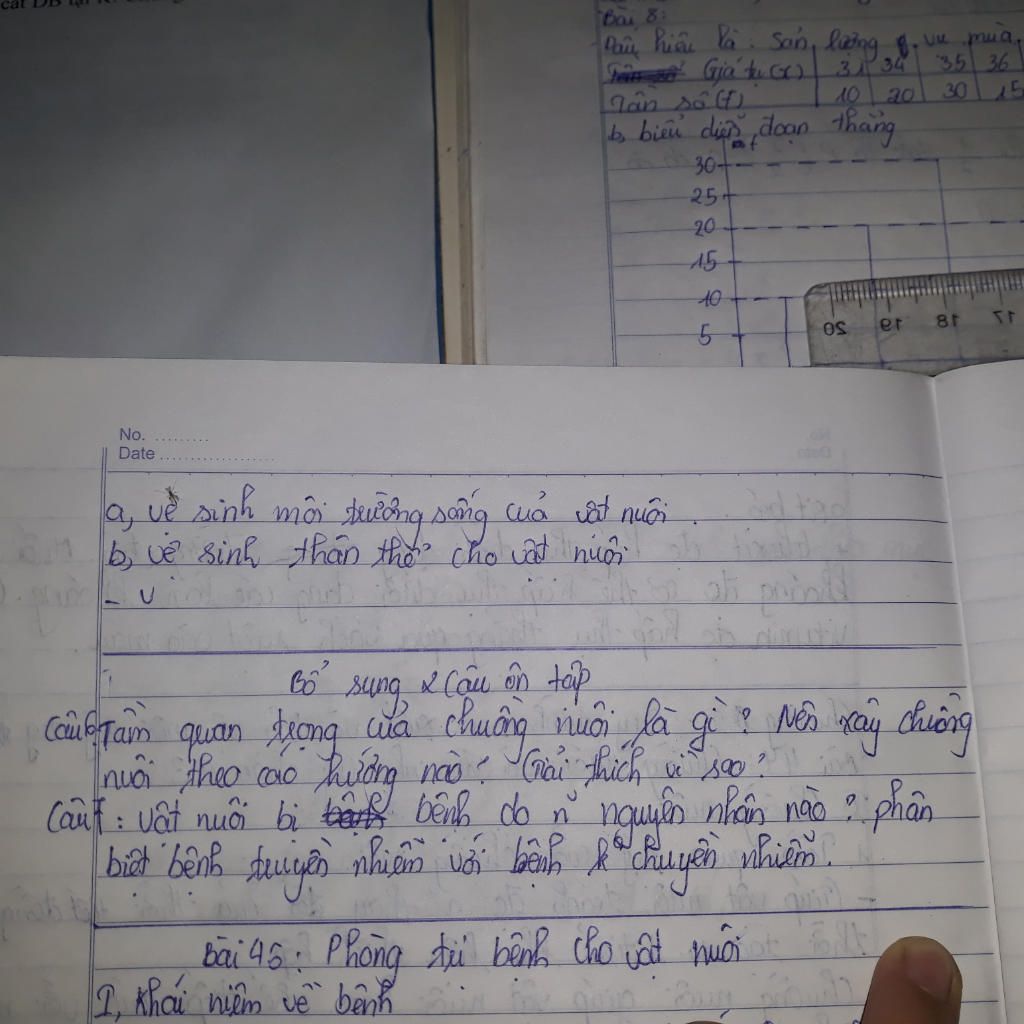 Bài 8:
Dấu hiệu là: Sản lượng vụ mùa
Giá trị (x) 31 34 35 36
Tần số (f) 10 20 30 15
b, biểu diễn đoạn thẳng
f
30
25
20
15
10
5
20 19 18 17
No. .........
Date ...................
a, vệ sinh môi trường sống của vật nuôi.
b, vệ sinh thân thể cho vật nuôi
- v
Bổ sung 2 Câu ôn tập
Câu 6: Tầm quan trọng của chuồng nuôi là gì? Nên xây chuồng
nuôi theo cáo hướng nào? Giải thích vì sao?
Câu 7: vật nuôi bị bệnh do n~ nguyên nhân nào? phân
biệt bệnh truyền nhiễm với bệnh k chuyền nhiễm.
Bài 45: Phòng trị bệnh cho vật nuôi
I, Khái niệm về bệnh